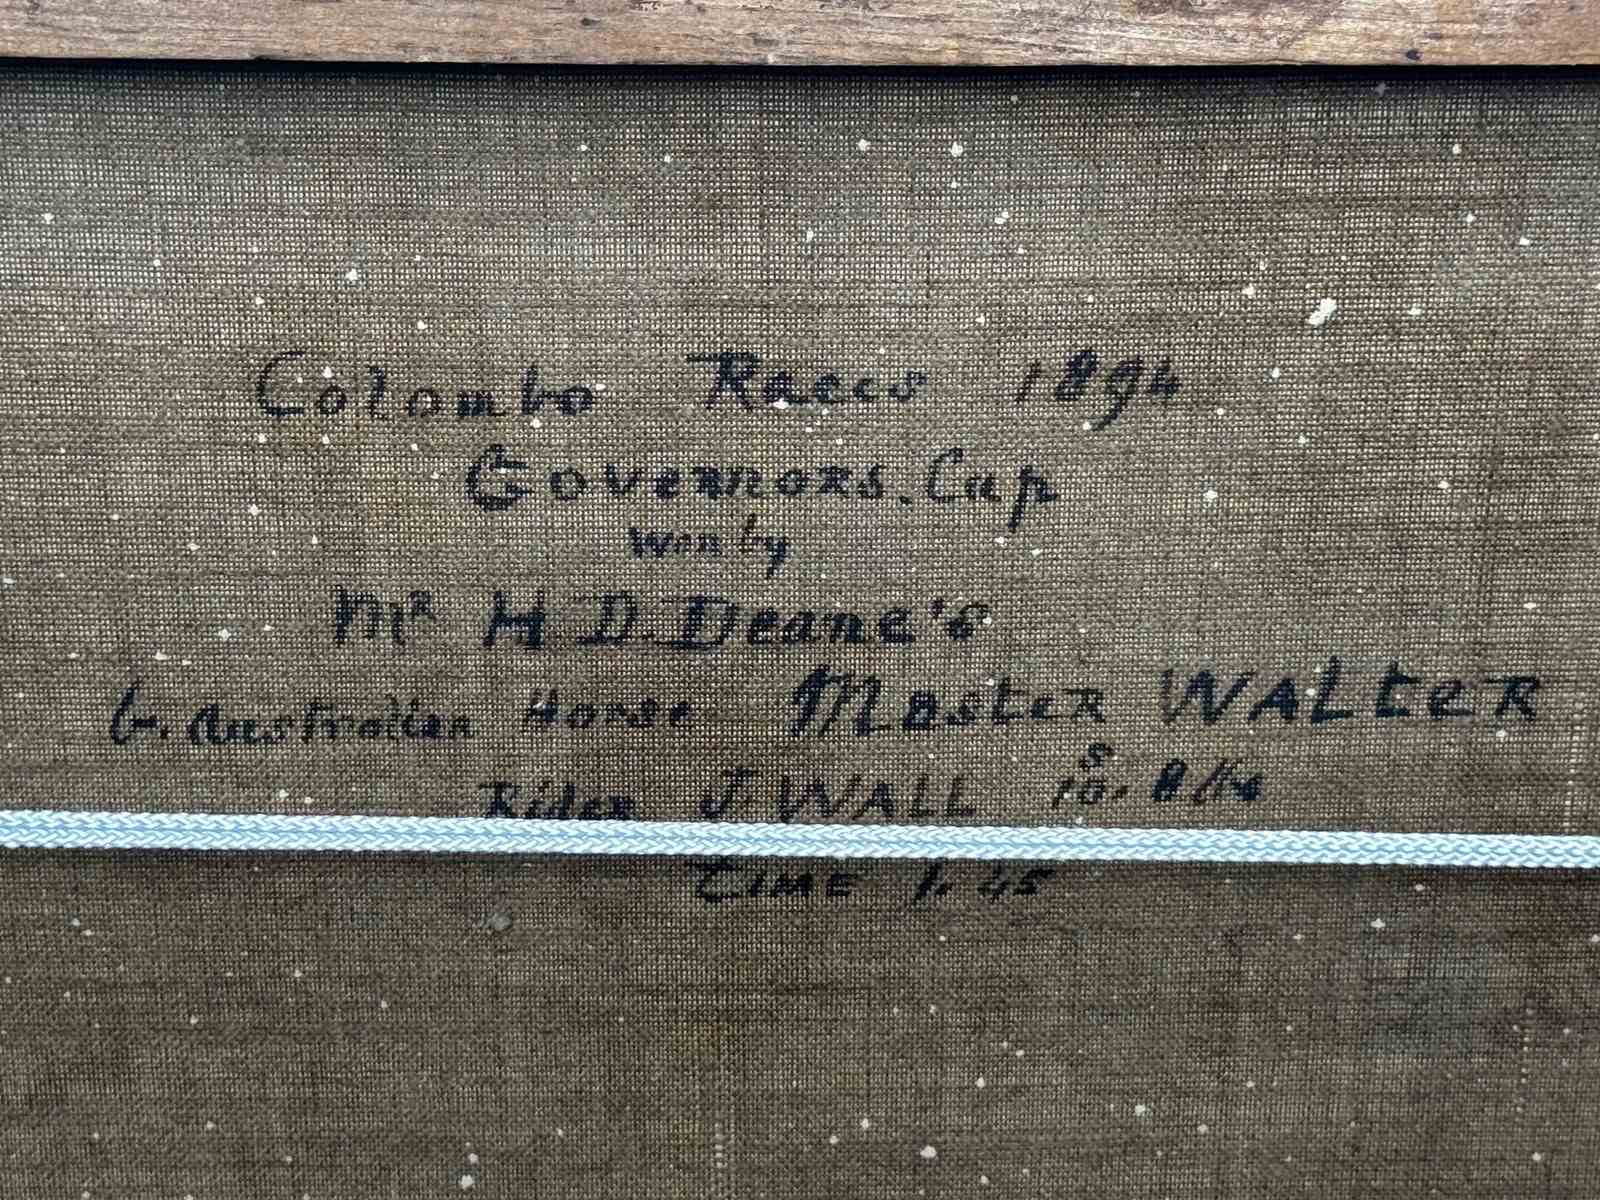 Colombo Races 1894
Governors. Cup
won by
Mr H D. Deane's
b. Australian Horse Master WALtER
Rider J. WALL 10. 8
TIME 1. 45